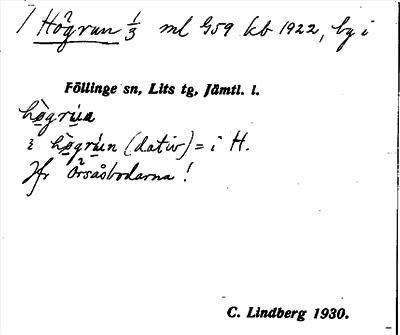 Högrun 1/3 ml G59 kb 1922, by i
Föllinge sn, Lits tg, Jämtl. l.
högrúa
i högrún (dativ) = i H.
Jfr Örsåsbodarna !
C. Lindberg 1930.